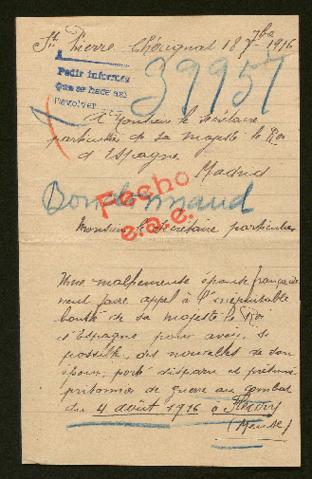 St Pierre Chérignat 18 7bre 1916
A
Pedir informes
Que se hace así
Devolver
39957
A Monsieur le secrétaire
particulier de sa majesté le Roi
d'Espagne
Madrid
Fecho
e.a.e.
Monsieur le secrétaire particulier
Une malheureuse épouse française
vient faire appel à l'inépuisable
bonté de sa majesté le Roi
d'Espagne pour avoir, si
possible, des nouvelles de son
époux, porté disparu et présumé
prisonnier de guerre au combat
du 4 août 1916 à Fleury
(Meuse)